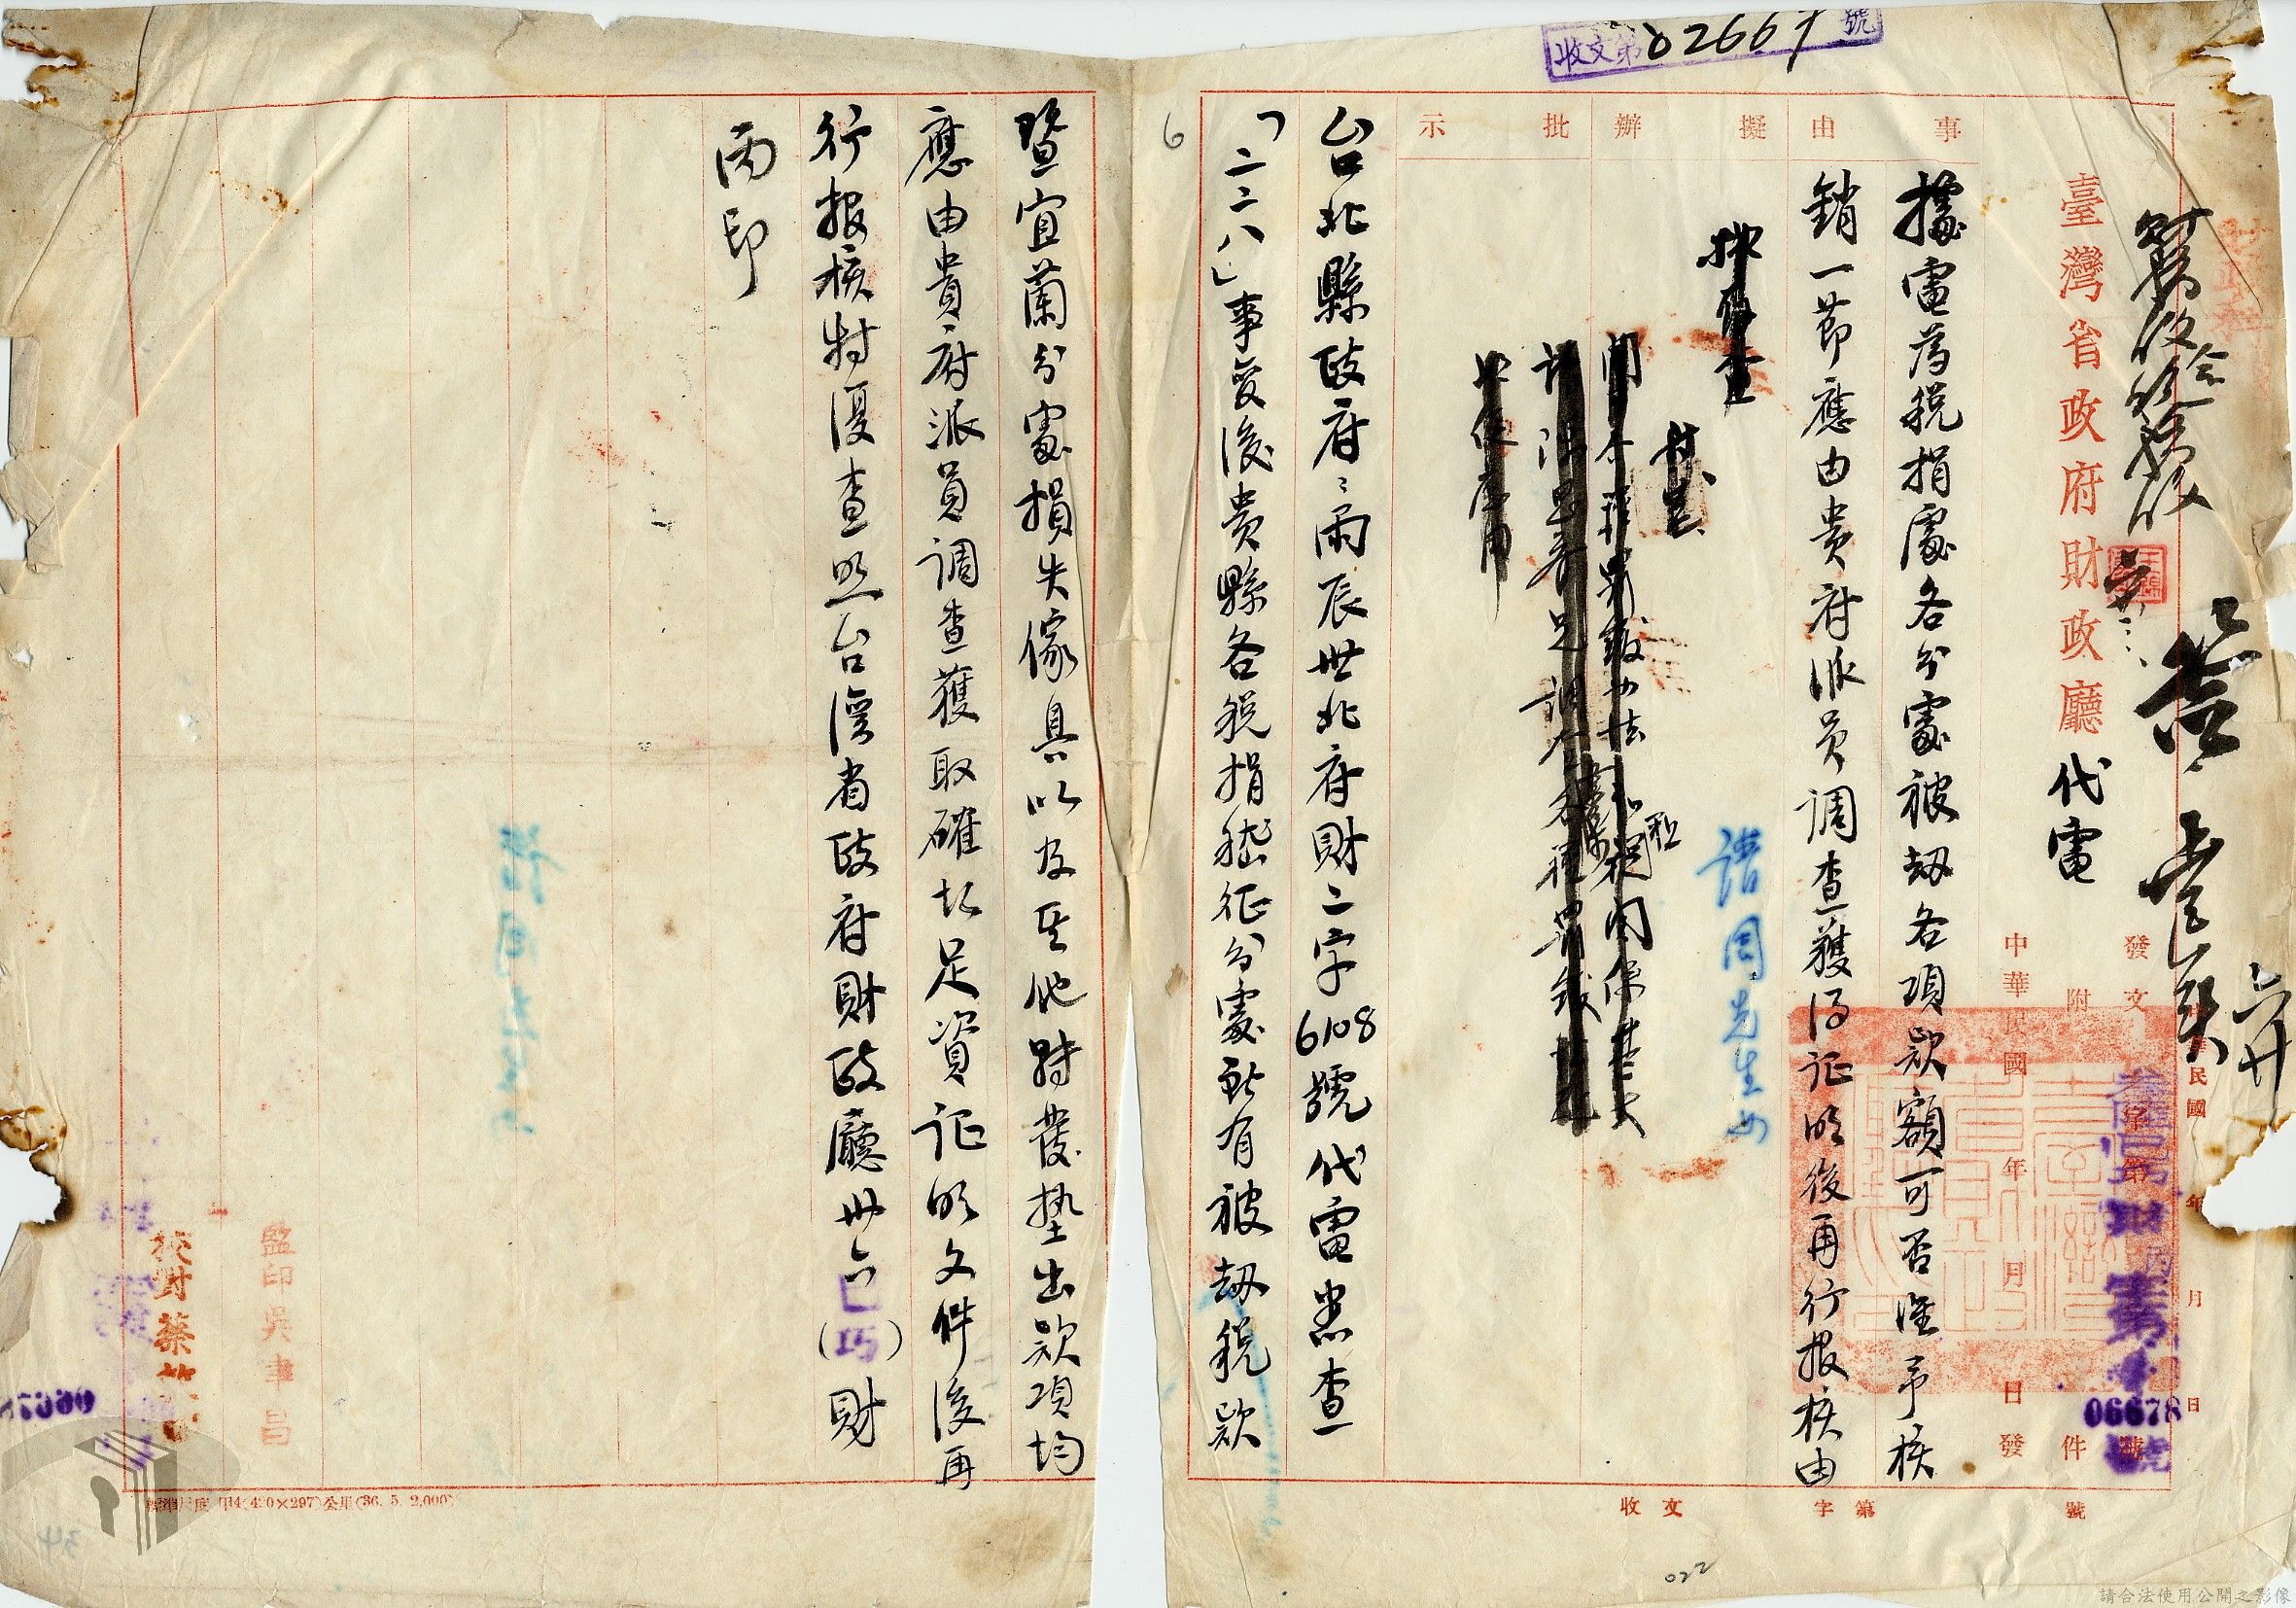 收文第02667號
臺灣省政府財政廳代電
發文
附件
中華民國 年 月 日發
民國 年 月 日
字第
06678
號
事由
據電為稅捐處各分處被刼各項款額可否准予核
銷一節應由貴府派員調查獲得証明後再行報核由
擬辦
批示
諸同先生如
台北縣政府：兩辰世北府財二字6108號代電悉查
「二二八」事變後貴縣各稅捐稽征分處所有被刼稅款
暨宜蘭分處損失傢具以及其他時發墊出款項均
應由貴府派員調查獲取確切足資証明文件後再
行報核特復查照台灣省政府財政廳卅六巳（巧）財
丙印
監印吳聿昌
校對蔡
標準尺度 甲4(420×297)公厘(36. 5. 2,000)
收文 字第 號
6
022
34
請合法使用公開之影像